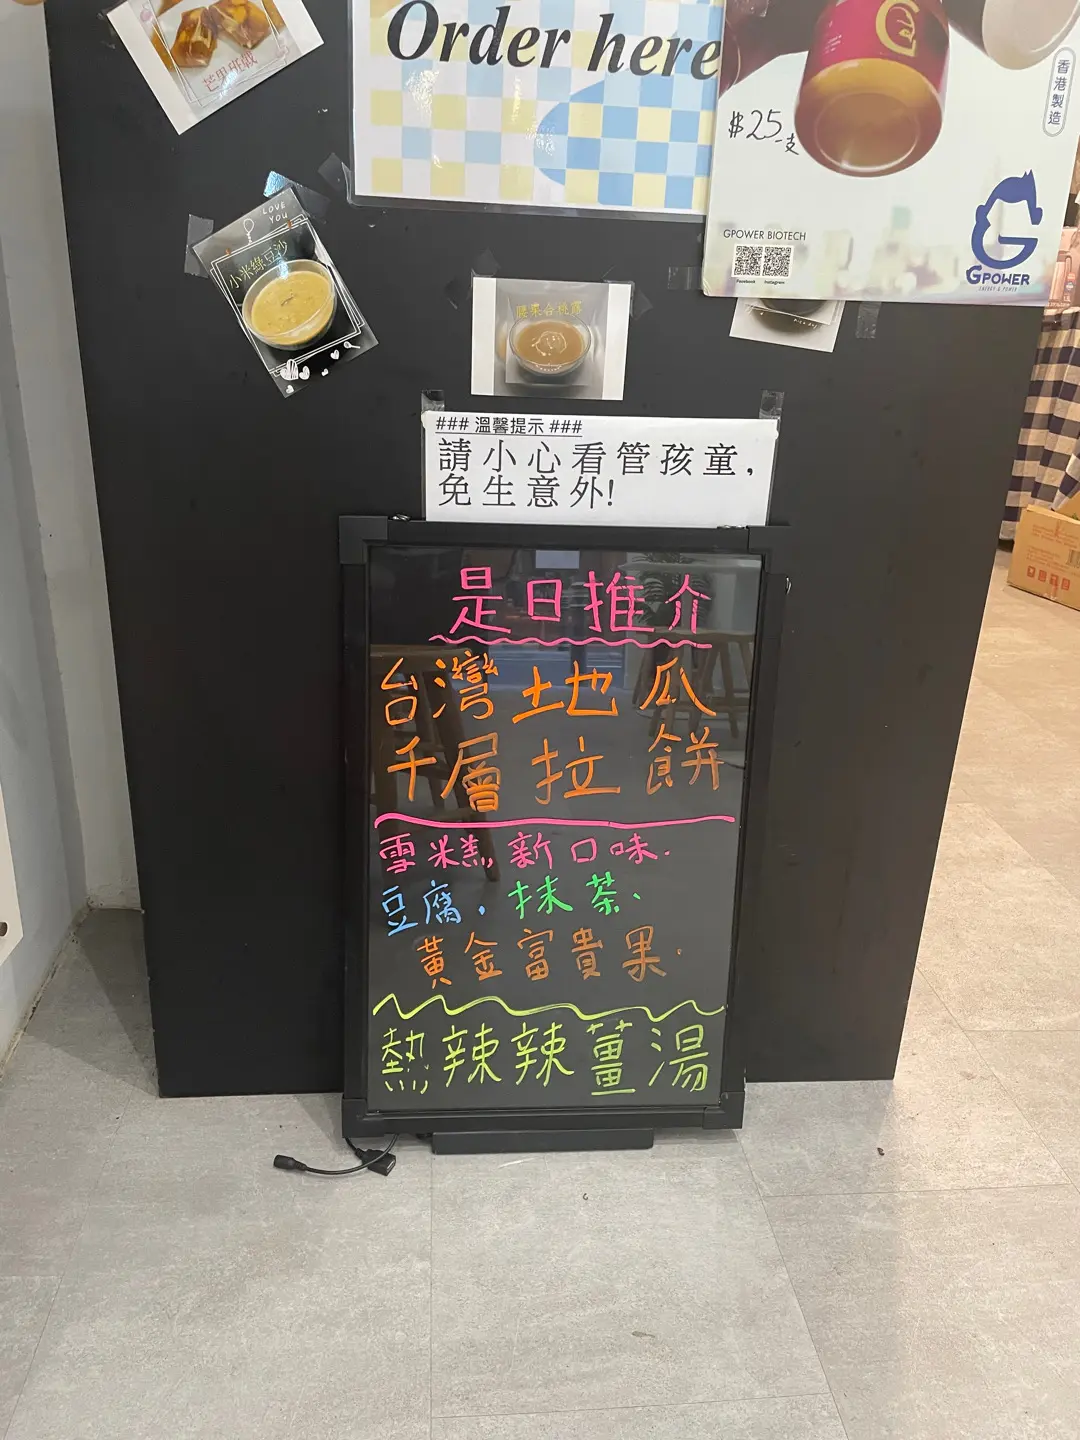 Order here
芒果班戟
香港製造
$25一支
LOVE
YOU
小米綠豆沙
GPOWER BIOTECH
Facebook Instagram
GPOWER
腰果合桃露
### 溫馨提示 ###
請小心看管孩童,
免生意外!
是日推介
台灣土地瓜
千層拉餅
雪糕,新口味.
豆腐.抹茶、
黃金富貴果.
熱辣辣薑湯